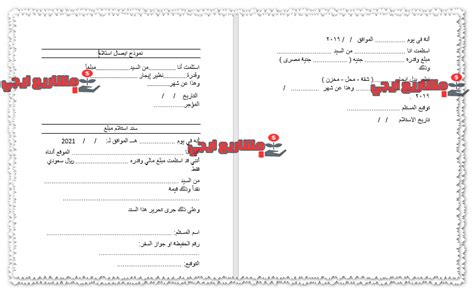 أنه في يوم .......... الموافق / / ٢٠١٦
استلمت انا .................... من السيد ....................
مبلغ وقدره .................... جنيه (.................... جنيه مصرى )
وذلك
ايجار ( شقة - محل - مخزن )
مشاريع اربحي
وهذا عن شهر ....................
توقيع المستلم : ....................
تاريخ الاستلام / /
نموذج ايصال استلام
استلمت أنا .................... من السيد .................... مبلغاً
وقدرة .................... نظير إيجار
مشاريع اربحي
وهذا عن شهر
التاريخ / /
المؤجر ....................
سند استلام مبلغ
أنه في يوم .......... / / هـ الموافق لـ: / / 2021
مشاريع اربحي
الموقع أدناه
أنني قد استلمت مبلغ مالي وقدره .................... ريال سعودي
من السيد ....................
نقداً وذلك قيمة
وعلي ذلك جرى تحرير هذا السند
اسم المستلم: ....................
رقم الحفيظه او جواز السفر: ....................
التوقيع: ....................